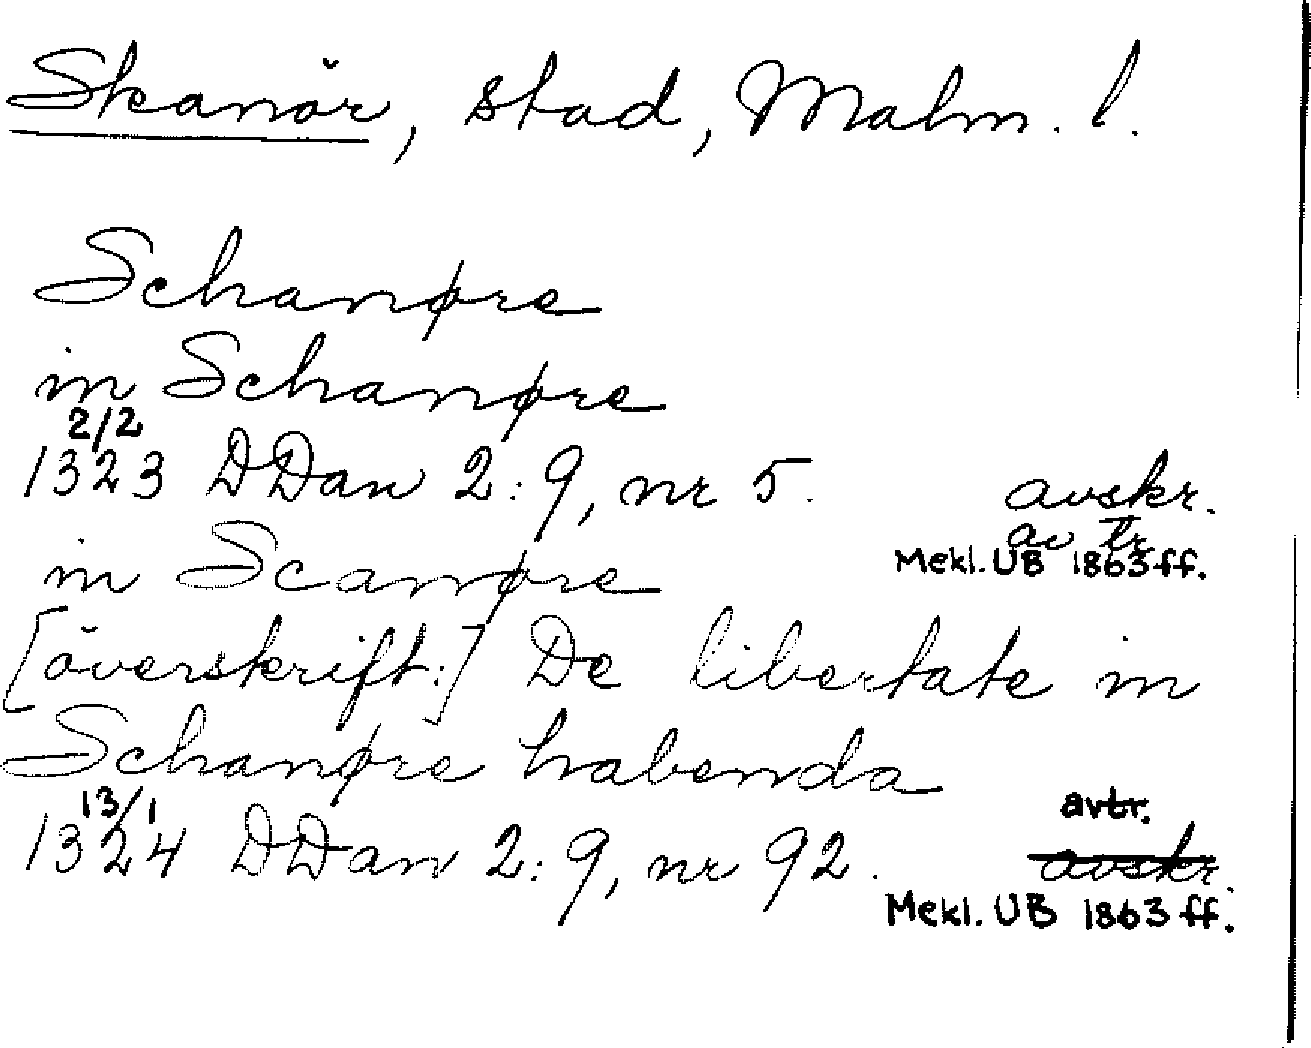 Skanör, stad, Malm. l.
Schanøre
in Schanøre
2/2
1323 DDan 2:9, nr 5. avskr.
av tr
in Scanøre Mekl. UB 1863 ff.
[överskrift:] De libertate in
Schanøre habenda
13/1 avtr.
1324 DDan 2:9, nr 92. avskr.
Mekl. UB 1863 ff.